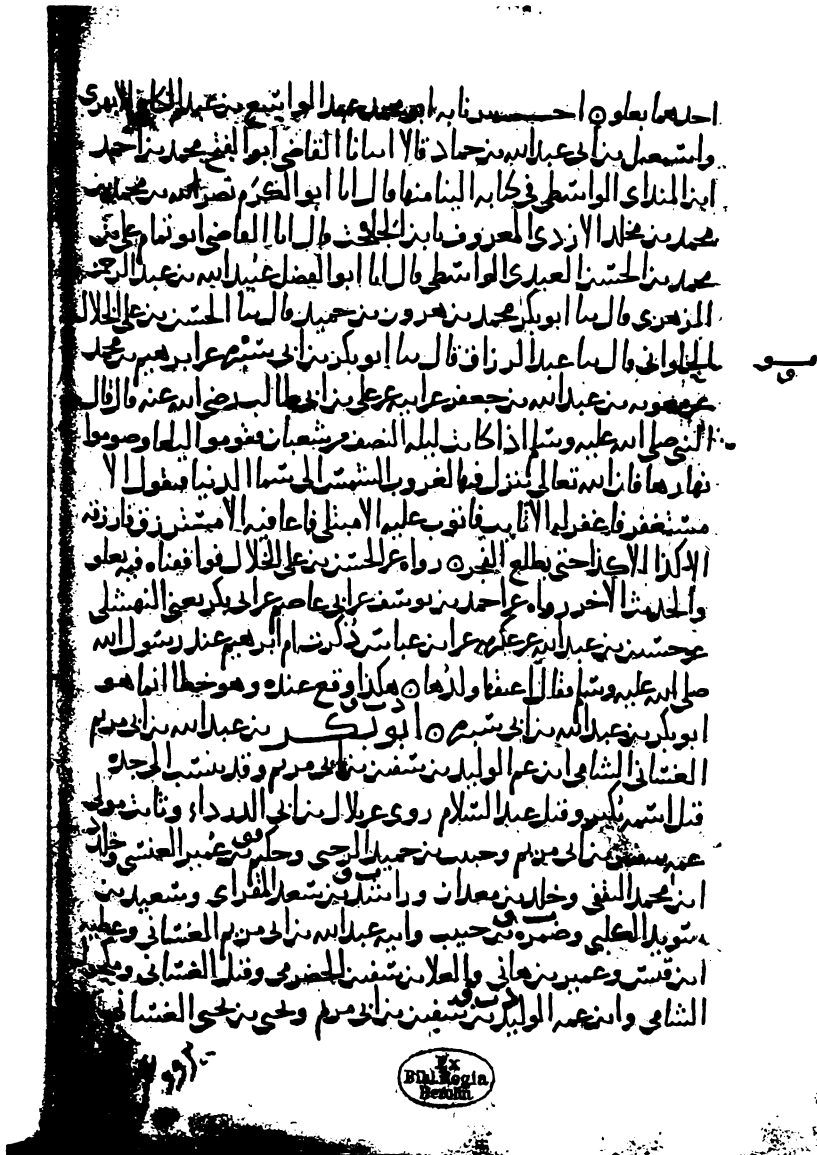 احدهما بعلو ۞ اخبرنا به ابو محمد عبد الواسع بن عبد الكافي الابهري
واسمعيل بن ابي عبد الله بن حماد قالا انبانا القاضي ابو الفتح محمد بن احمد
ابن المنداي الواسطي في كتابه الينا منها قال انا ابو الكرم نصر الله بن محمد بن
محمد بن مخلد الازدي المعروف بابن الجلخت قال انا القاضي ابو تمام علي بن
محمد بن الحسن العبدي الواسطي قال انا ابو الفضل عبيد الله بن عبد الرحمن
الزهري قال نا ابو بكر محمد بن هرون بن حميد قال نا الحسن بن علي الخلال
الحلواني قال نا عبد الرزاق قال نا ابو بكر بن ابي سبرة عن ابرهيم بن محمد
عن معوية بن عبد الله بن جعفر عن ابيه عن علي بن ابي طالب رضي الله عنه قال قال
النبي صلى الله عليه وسلم اذا كانت ليلة النصف من شعبان فقوموا ليلها وصوموا
نهارها فان الله تعالى ينزل فيها لغروب الشمس الى سما الدنيا فيقول الا
مستغفر فاغفر له الا تايب فاتوب عليه الا مبتلى فاعافيه الا مسترزق فارزقه
الا كذا الا كذا حتى يطلع الفجر ۞ رواه عن الحسن بن علي الخلال فوافقناه فيه بعلو
والحديث الاخر رواه عن احمد بن يوسف عن ابي عاصم عن ابي بكر يعني النهشلي
عن حسين بن عبد الله عن عكرمة عن ابن عباس ذكرت ام ابرهيم عند رسول الله
صلى الله عليه وسلم فقال اعتقها ولدها ۞ هكذا وقع عنده وهو خطا انما هو
ابو بكر بن عبد الله بن ابي سبرة ۞ د ت ق ابو بكر بن عبد الله بن ابي مريم
الغساني الشامي ابن عم الوليد بن سفين بن ابي مريم وقد ينسب الى جده
قيل اسمه بكير وقيل عبد السلام روى عن بلال بن ابي الدرداء وثابت مولى
عمه سفين بن ابي مريم وحبيب بن حميد الرحبي وحكيم بن عمير العنسي وخالد
ابن محمد الثقفي وخالد بن معدان وراشد بن سعد المقراي وسعيد بن
سويد الكلبي وضمرة بن حبيب وابيه عبد الله بن ابي مريم الغساني وعطية
ابن قيس وعمير بن هاني والعلا بن سفين الحضرمي وقيل الغساني ومكحول
الشامي وابن عمه الوليد بن سفين بن ابي مريم ويحيى بن يحيى الغساني
Ex
Bibl. Regia
Berolin